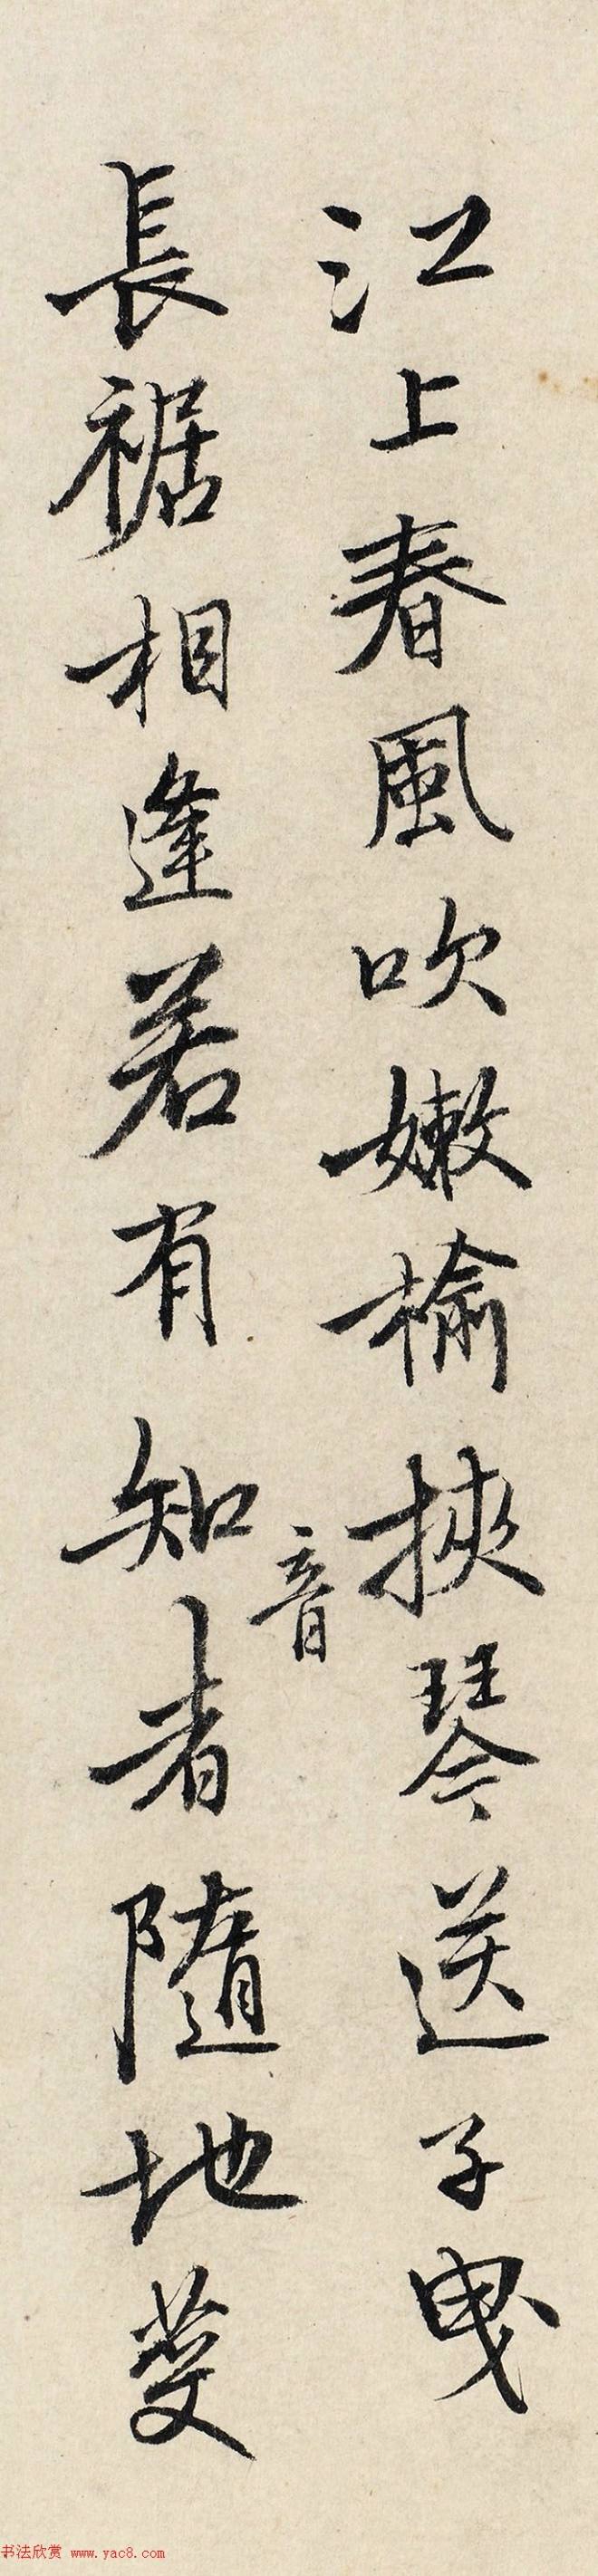 江上春風吹嫩榆挾琴送子曳
長裾相逢若有知音者隨地發
书法欣赏 www.yac8.com